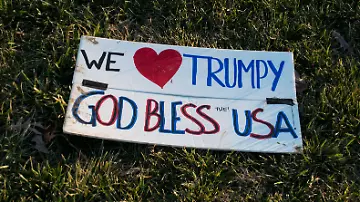 WE ❤ TRUMPY
GOD BLESS THE USA